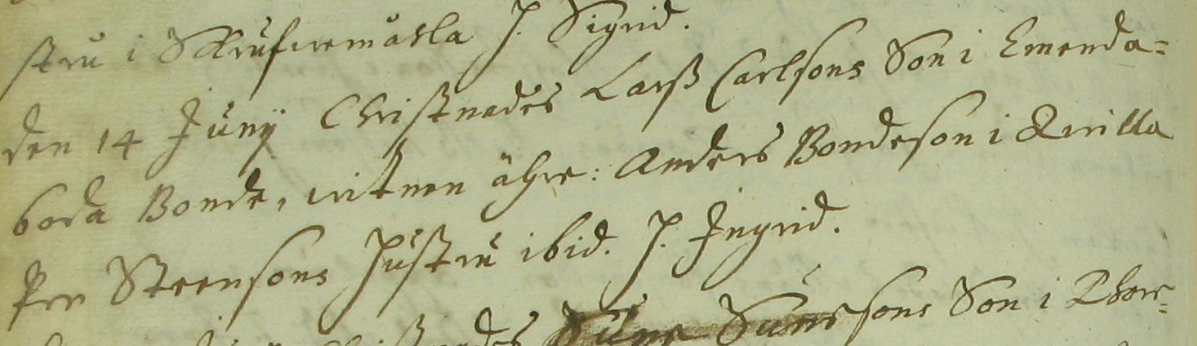 stru i Skrufwemåhla P. Sigrid.
den 14 Junij Christnades Larß Carlsons Son i Emenda=
boda Bonde, witnen ähre: Anders Bondeson i Qwilla
Per Steensons Hustru ibid. P. Ingrid.
Christnades Sune Sunesons Son i Thore=